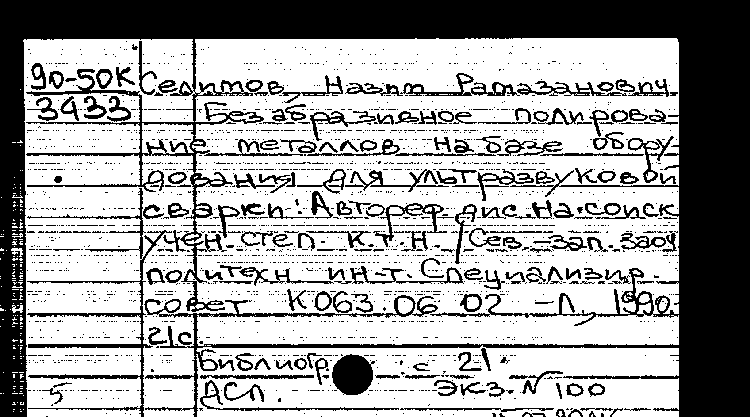 90-50К Селимов, Назим Рамазанович
3433 Безабразивное полирова-
ние металлов на базе обору-
дования для ультразвуковой
сварки: Автореф. дис. на соиск
учен. степ. к.т.н. / Сев.-зап. заоч
политехн ин-т. Специализир.
совет К063.06 02 -Л., 1990.-
21с.
Библиогр.: с 21.
5 ДСП. ЭКЗ. № 100